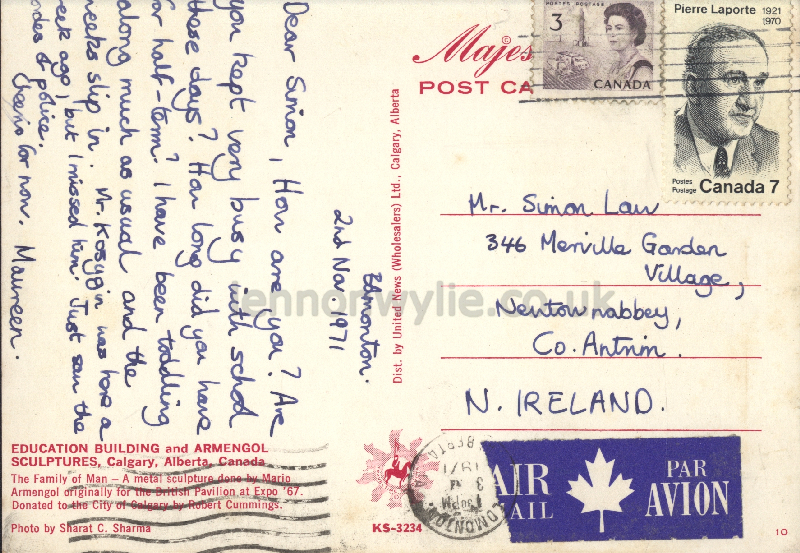 Edmonton.
2nd Nov. 1971
Dear Simon, How are you? Are
you kept very busy with school
these days? How long did you have
for half-term? I have been toddling
along much as usual and the
weeks slip in. Mr. Kosygin was here a
week ago, but I missed him. Just saw the
of police.
Cheerio for now. Maureen.
EDUCATION BUILDING and ARMENGOL
SCULPTURES, Calgary, Alberta, Canada
The Family of Man – A metal sculpture done by Mario
Armengol originally for the British Pavilion at Expo '67.
Donated to the City of Calgary by Robert Cummings.
Photo by Sharat C. Sharma
Dist. by United News (Wholesalers) Ltd., Calgary, Alberta
KS-3234
Majes
®
POST CA
POSTES POSTAGE
3
CANADA
Pierre Laporte 1921
1970
Postes
Postage Canada 7
Mr. Simon Law
346 Merville Garden
Village,
Newtownabbey,
Co. Antrim.
N. IRELAND.
lennonwylie.co.uk
EDMONTON
ALBERTA
PM
3
1971
AIR
MAIL
PAR
AVION
10